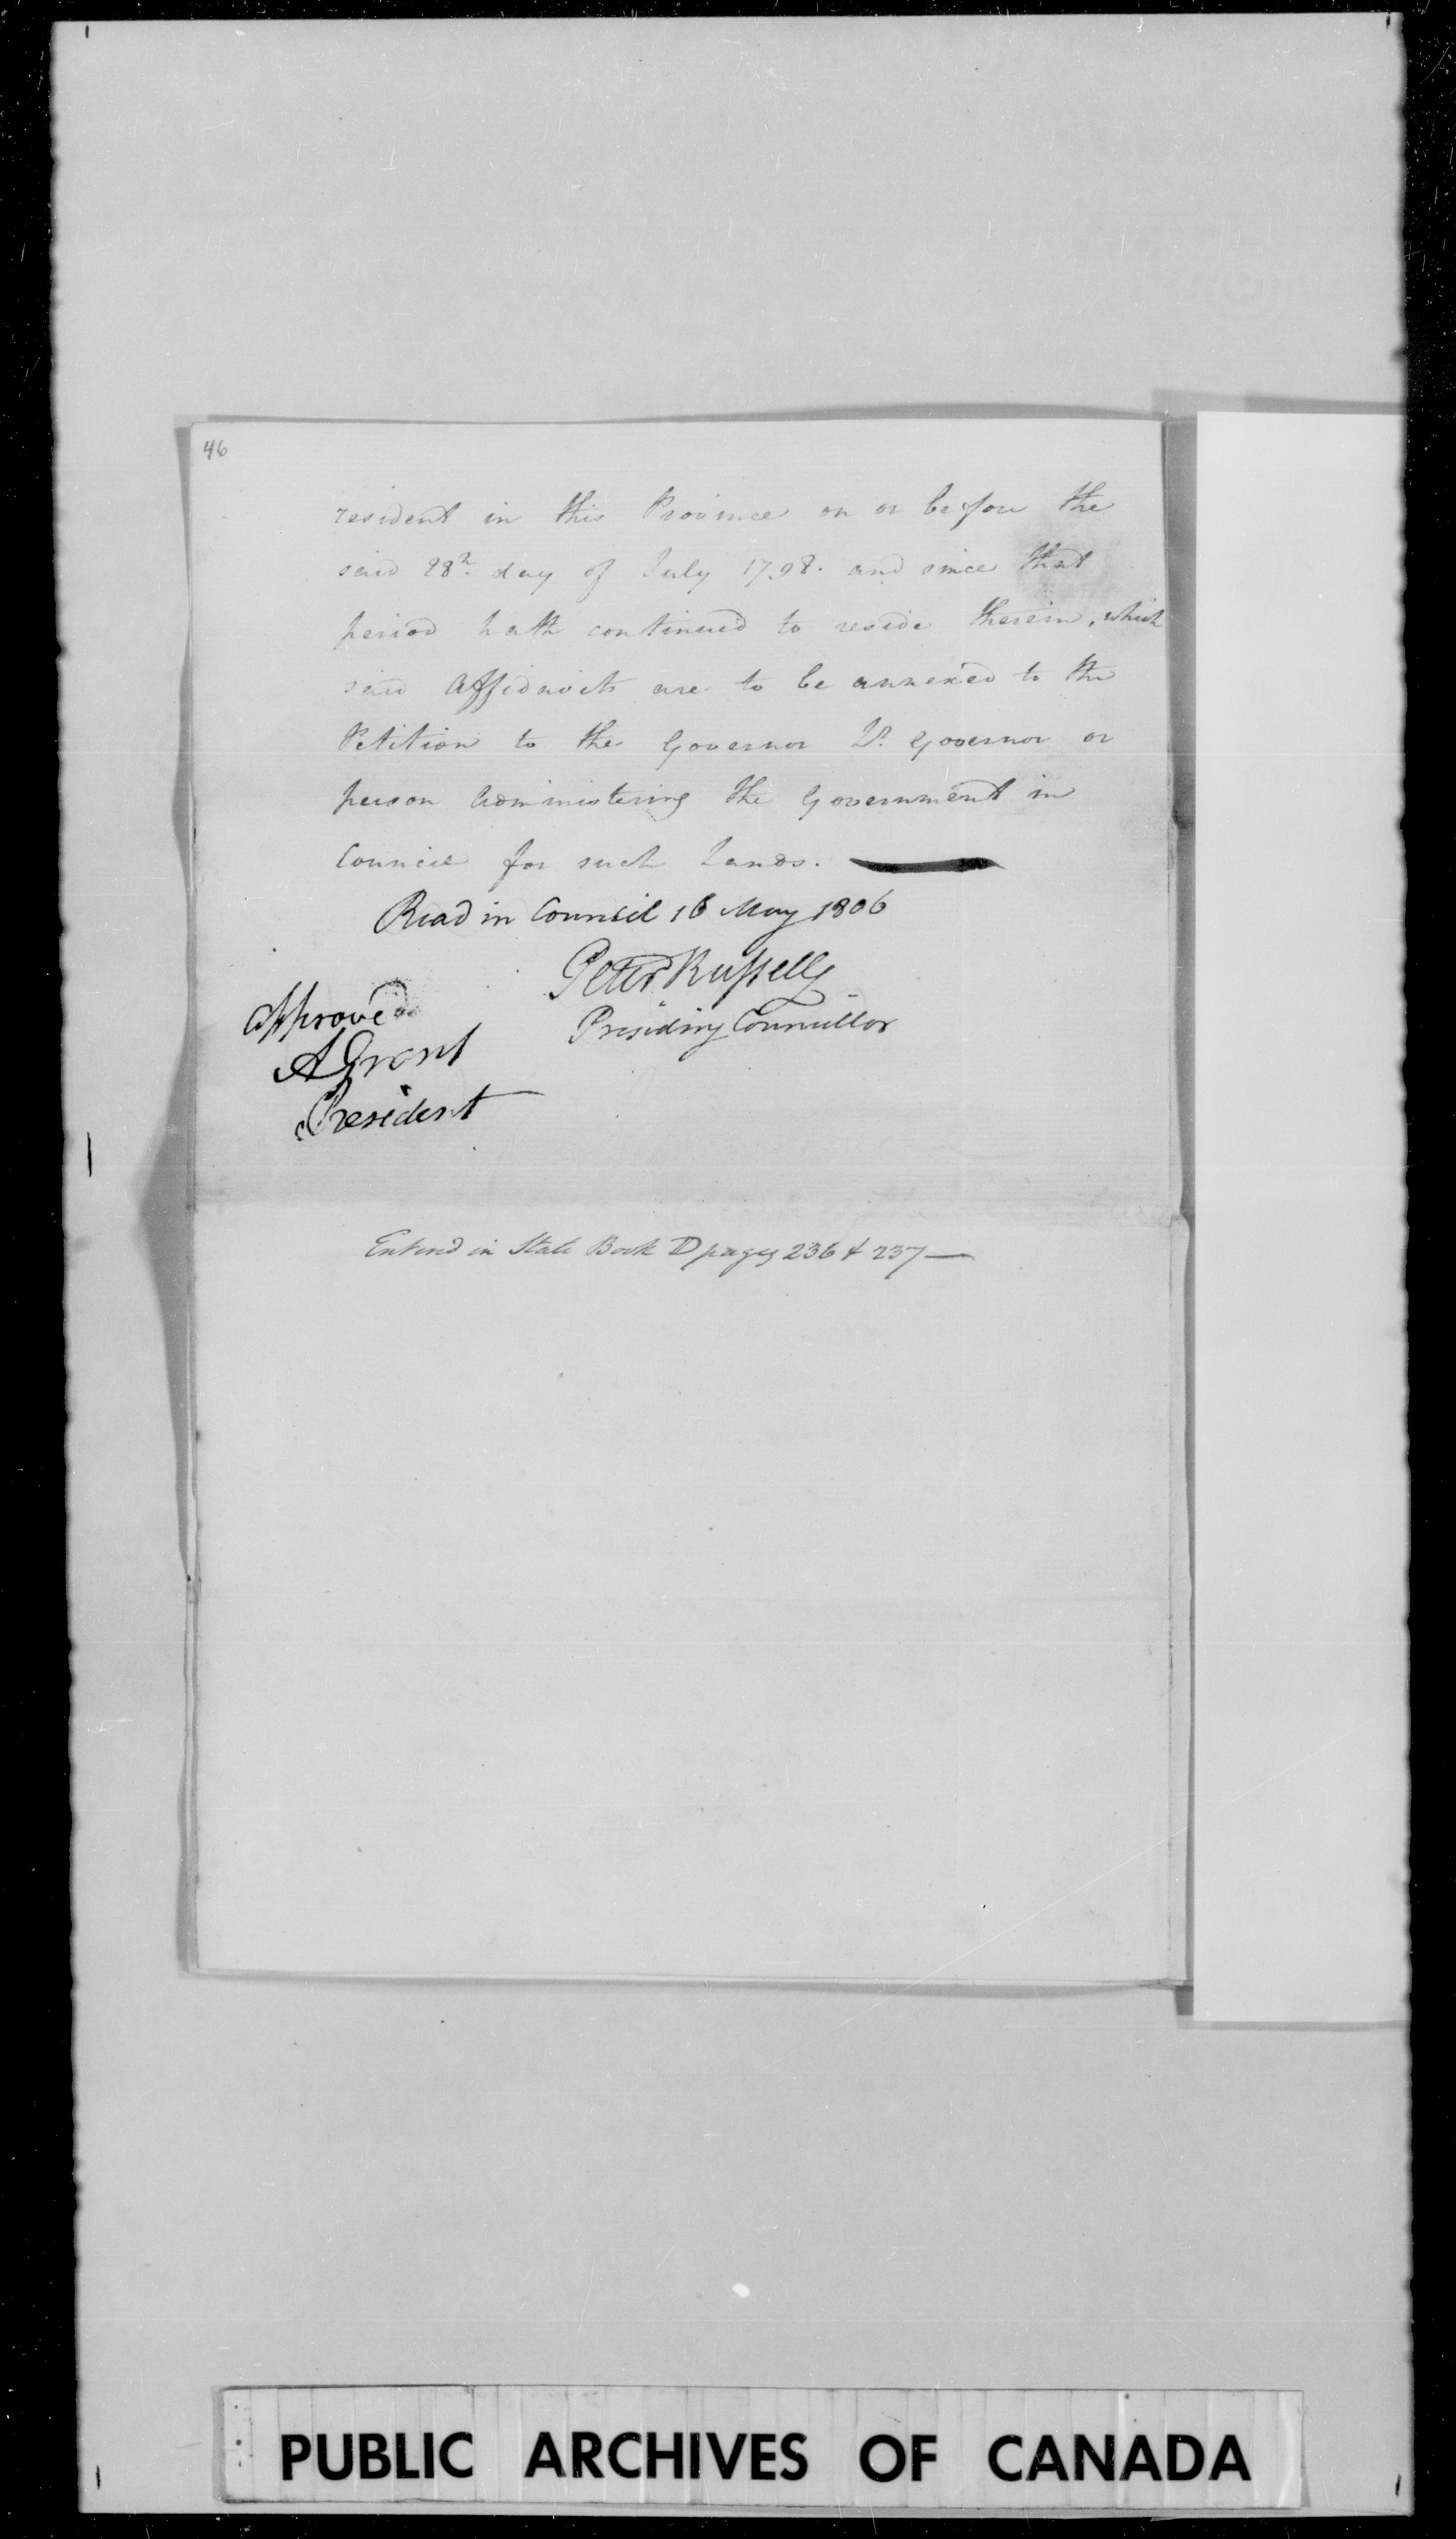 46
resident in this Province on or before the
said 28th day of July 1798. and since that
period hath continued to reside therein, which
said Affidavits are to be annexed to the
Petition to the Governor Lt. Governor or
person Administering the Government in
Council for such Lands.
Read in Council 16 May 1806
Peter Russell
Presiding Councillor
Approved
A Grant
President
Entered in State Book D pages 236 & 237
PUBLIC ARCHIVES OF CANADA